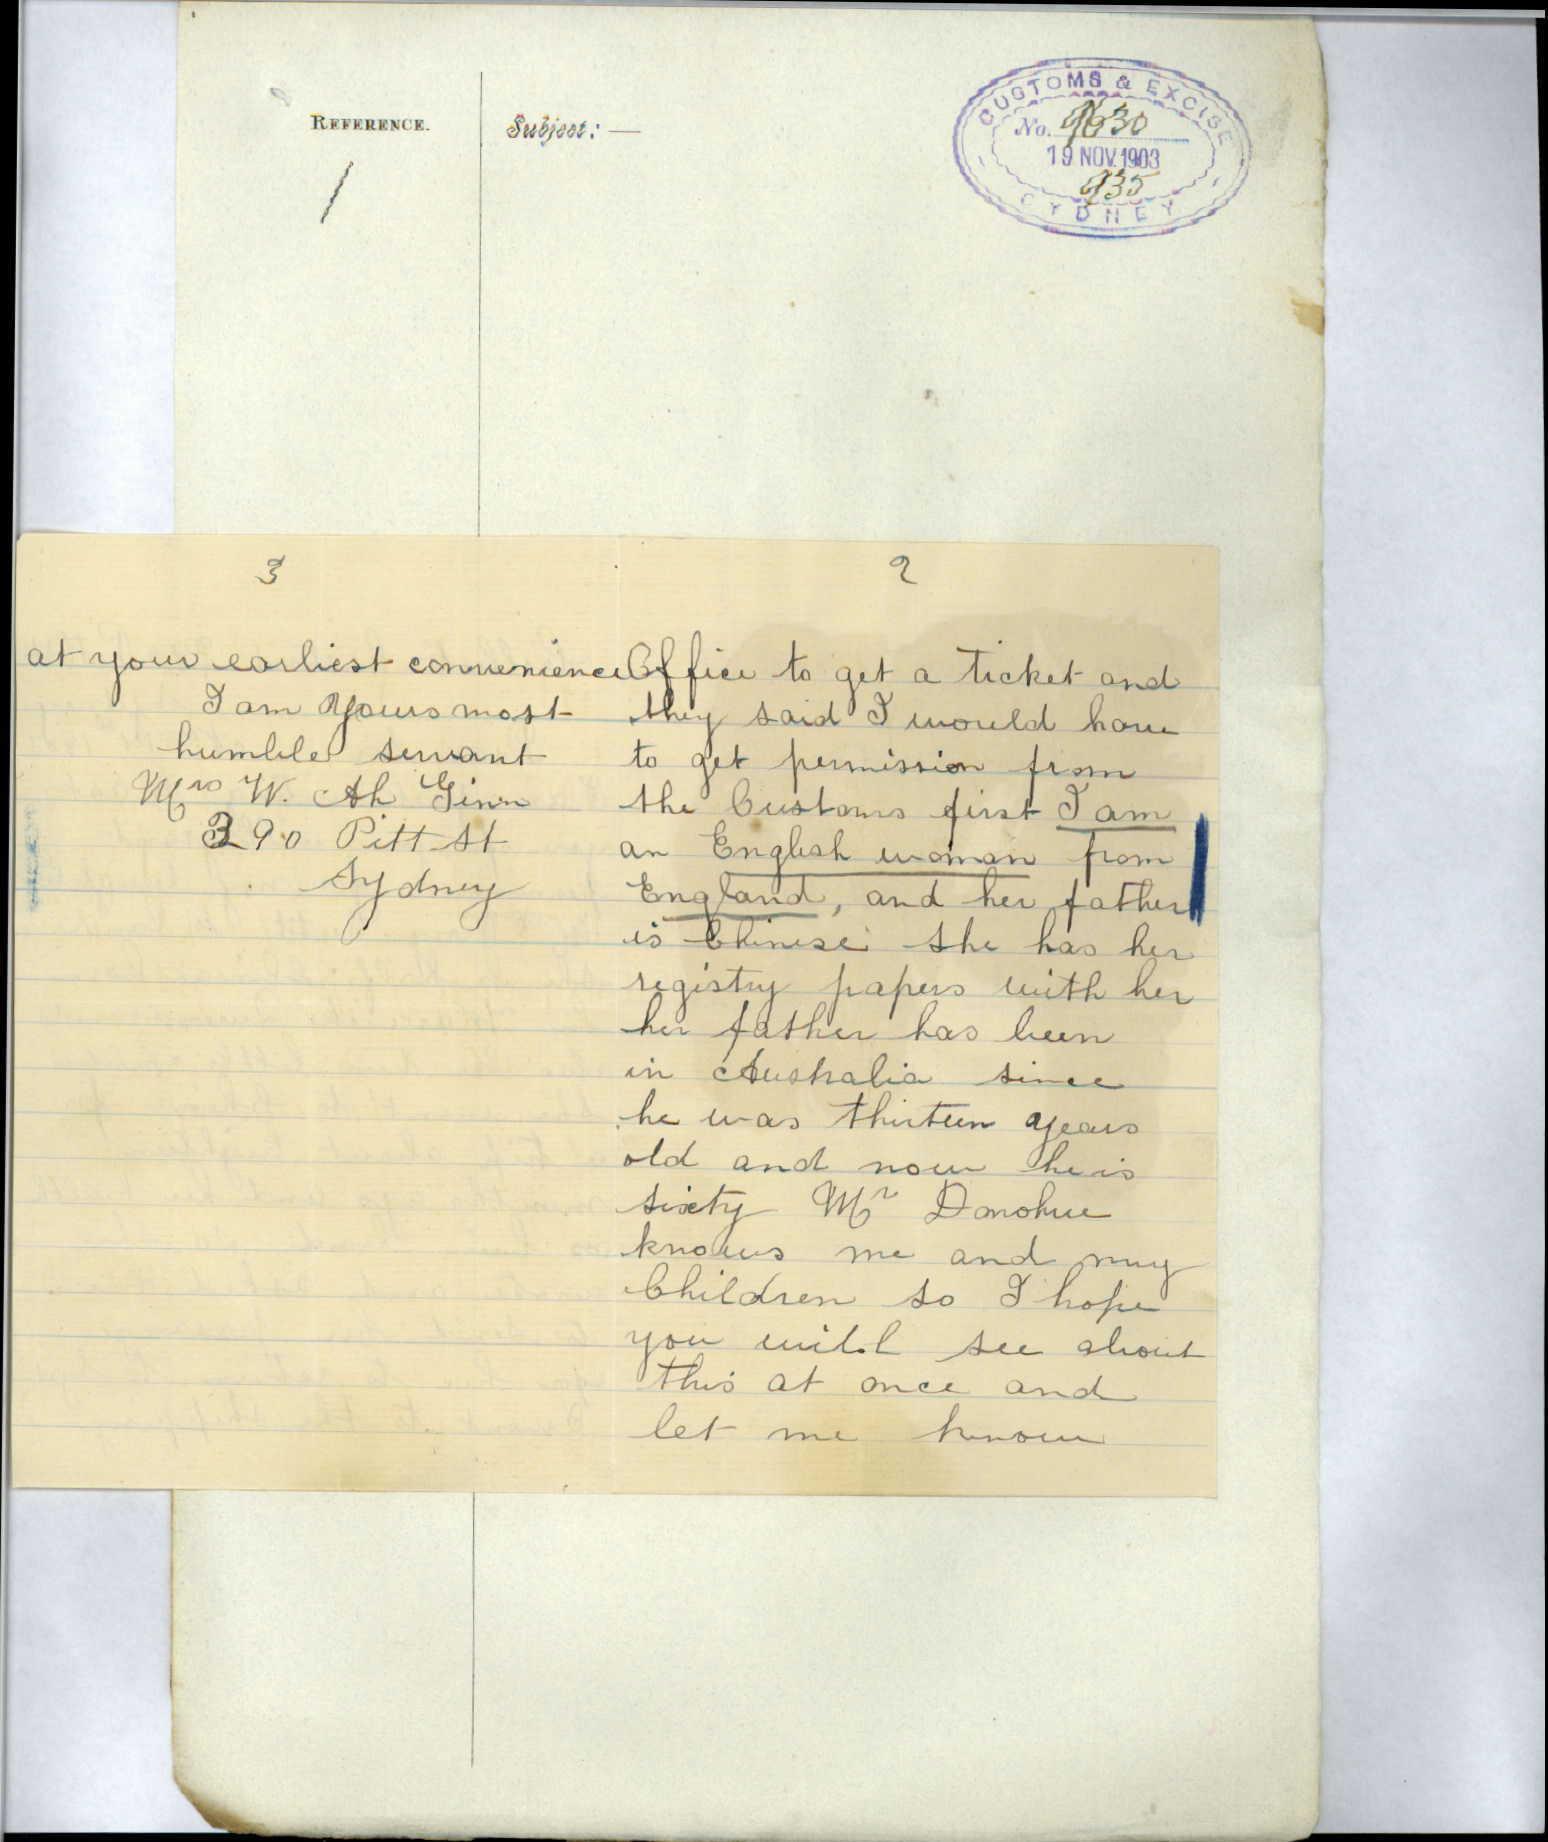 REFERENCE.
Subject: —
CUSTOMS & EXCISE
No. 9630
19 NOV. 1903
935
SYDNEY
2
Office to get a ticket and
they said I would have
to get permission from
the Customs first I am
an English woman from
England, and her father
is Chinese she has her
registry papers with her
her father has been
in Australia since
he was thirteen years
old and now he is
sixty Mr Donohue
knows me and my
Children so I hope
you will see about
this at once and
let me know
3
at your earliest convenience
I am Yours most
humble servant
Mrs W. Ah Ginn
390 Pitt St
Sydney